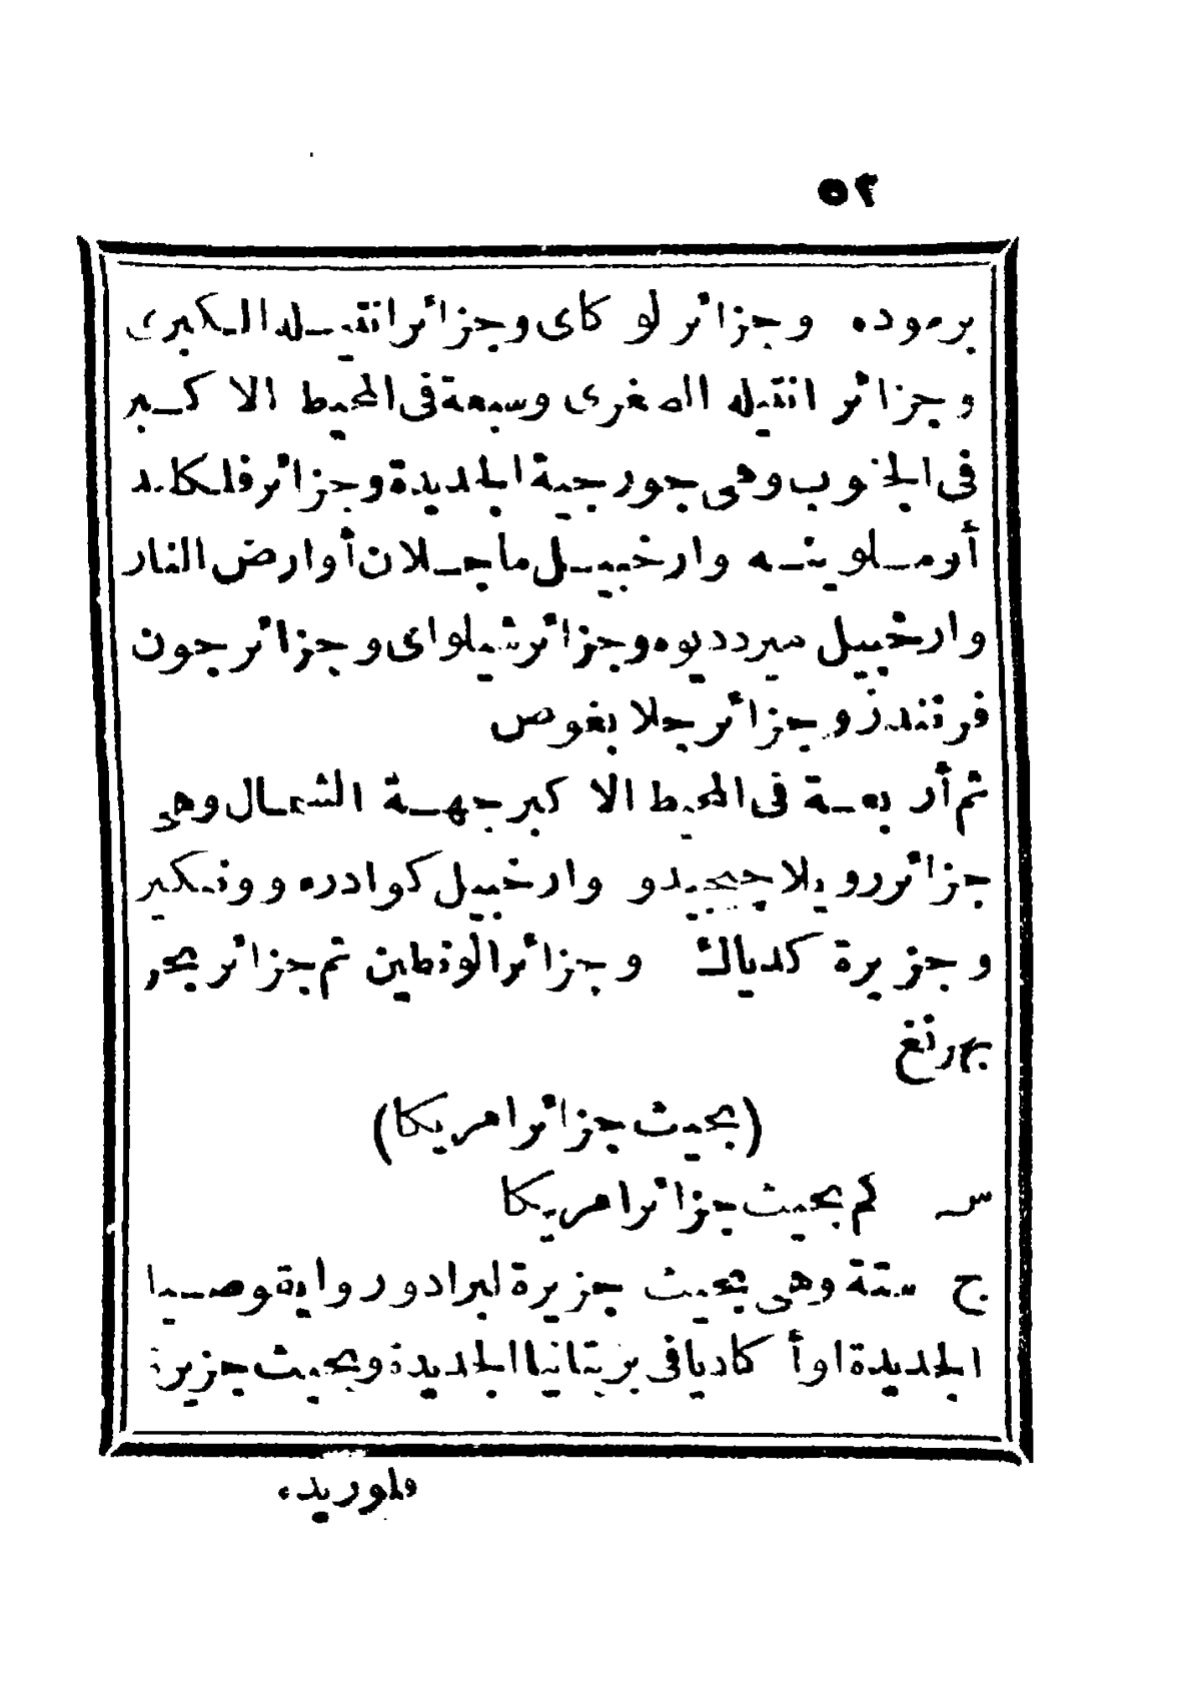 ٥٢
برموده وجزائر لوكاى وجزائر انتيله الكبرى
وجزائر انتيله الصغرى وسبعة فى المحيط الاكبر
فى الجنوب وهى جورجية الجديدة وجزائر فلكلند
أو ملوينه وارخبيل ماجلان أو ارض النار
وارخبيل ميرديوه وجزائر شيلواى وجزائر جون
فرنندز وجزائر جلابغوص
ثم أربعة فى المحيط الاكبر جهة الشمال وهى
جزائر رويلاججيدو وارخبيل كوادره وونكير
وجزيرة كدياك وجزائر الوتطين ثم جزائر بحر
بهرنغ
(بحيث جزائر امريكا)
س كم بحيث جزائر امريكا
ج ستة وهى بحيث جزيرة لبرادور واية وصيا
الجديدة او أكاديا فى بريتانيا الجديدة وبحيث جزيرة
فلوريده